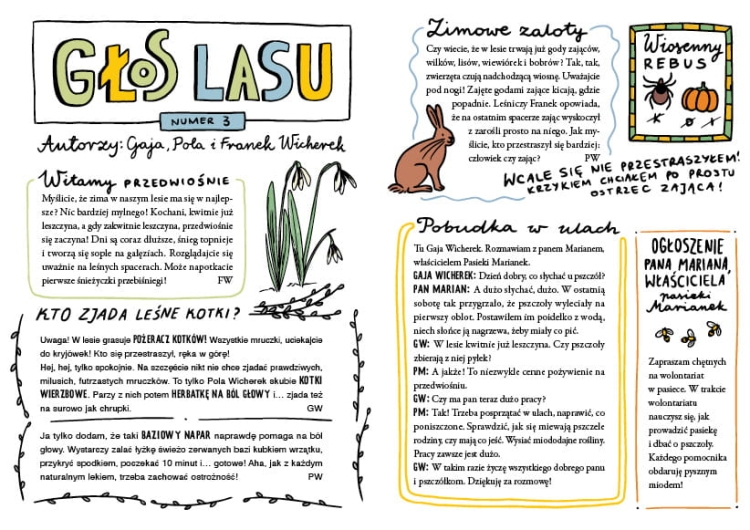 GŁOS LASU
NUMER 3
Autorzy: Gaja, Pola i Franek Wicherek
Witamy PRZEDWIOŚNIE
Myślicie, że zima w naszym lesie ma się w najlep-
sze? Nic bardziej mylnego! Kochani, kwitnie już
leszczyna, a gdy zakwitnie leszczyna, przedwiośnie
się zaczyna! Dni są coraz dłuższe, śnieg topnieje
i tworzą się sople na gałęziach. Rozglądajcie się
uważnie na leśnych spacerach. Może napotkacie
pierwsze śnieżyczki przebiśniegi!
FW
KTO ZJADA LEŚNE KOTKI?
Uwaga! W lesie grasuje POŻERACZ KOTKÓW! Wszystkie mruczki, uciekajcie
do kryjówek! Kto się przestraszył, ręka w górę!
Hej, hej, tylko spokojnie. Na szczęście nikt nie chce zjadać prawdziwych,
milusich, futrzastych mruczków. To tylko Pola Wicherek skubie KOTKI
WIERZBOWE. Parzy z nich potem HERBATKĘ NA BÓL GŁOWY i… zjada też
na surowo jak chrupki.
GW
Ja tylko dodam, że taki BAZIOWY NAPAR naprawdę pomaga na ból
głowy. Wystarczy zalać łyżkę świeżo zerwanych bazi kubkiem wrzątku,
przykryć spodkiem, poczekać 10 minut i… gotowe! Aha, jak z każdym
naturalnym lekiem, trzeba zachować ostrożność!
PW
Zimowe zaloty
Czy wiecie, że w lesie trwają już gody zajęców,
wilków, lisów, wiewiórek i bobrów? Tak, tak,
zwierzęta czują nadchodzącą wiosnę. Uważajcie
pod nogi! Zajęte godami zające kicają, gdzie
popadnie. Leśniczy Franek opowiada,
że na ostatnim spacerze zając wyskoczył
z zarośli prosto na niego. Jak my-
ślicie, kto przestraszył się bardziej:
człowiek czy zając?
PW
WCALE SIĘ NIE PRZESTRASZYŁEM!
KRZYKIEM CHCIAŁEM PO PROSTU
OSTRZEC ZAJĄCA!
Wiosenny
REBUS
Pobudka w ulach
Tu Gaja Wicherek. Rozmawiam z panem Marianem,
właścicielem Pasieki Marianek.
GAJA WICHEREK: Dzień dobry, co słychać u pszczół?
PAN MARIAN: A dużo słychać, dużo. W ostatnią
sobotę tak przygrzało, że pszczoły wyleciały na
pierwszy oblot. Postawiłem im poidełko z wodą,
niech słońce ją nagrzewa, żeby miały co pić.
GW: W lesie kwitnie już leszczyna. Czy pszczoły
zbierają z niej pyłek?
PM: A jakże! To niezwykle cenne pożywienie na
przedwiośniu.
GW: Czy ma pan teraz dużo pracy?
PM: Tak! Trzeba posprzątać w ulach, naprawić, co
poniszczone. Sprawdzić, jak się miewają pszczele
rodziny, czy mają co jeść. Wysiać miododajne rośliny.
Pracy zawsze jest dużo.
GW: W takim razie życzę wszystkiego dobrego panu
i pszczółkom. Dziękuję za rozmowę!
OGŁOSZENIE
PANA MARIANA,
WŁAŚCICIELA
pasieki
Marianek
Zapraszam chętnych
na wolontariat
w pasiece. W trakcie
wolontariatu
nauczysz się, jak
prowadzić pasiekę
i dbać o pszczoły.
Każdego pomocnika
obdaruję pysznym
miodem!